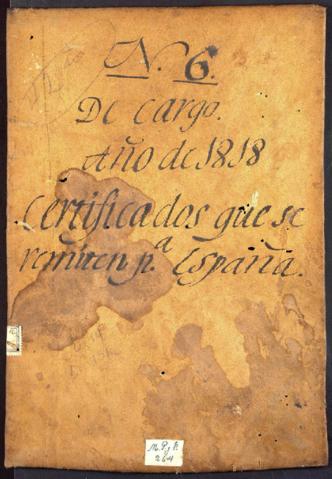 N. 6.
De cargo.
Año de 1818
Certificados que se
remiten pa. España.
264